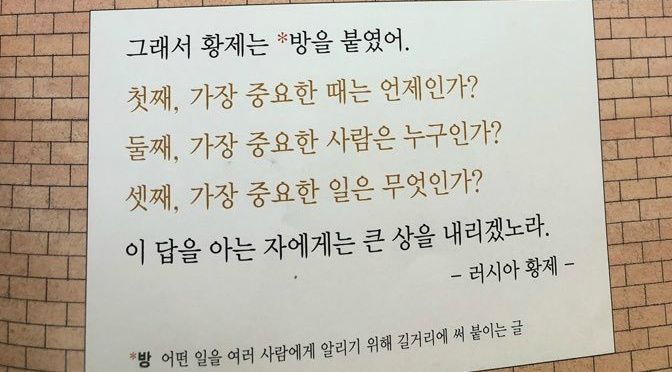 그래서 황제는 *방을 붙였어.
첫째, 가장 중요한 때는 언제인가?
둘째, 가장 중요한 사람은 누구인가?
셋째, 가장 중요한 일은 무엇인가?
이 답을 아는 자에게는 큰 상을 내리겠노라.
– 러시아 황제 –
*방 어떤 일을 여러 사람에게 알리기 위해 길거리에 써 붙이는 글